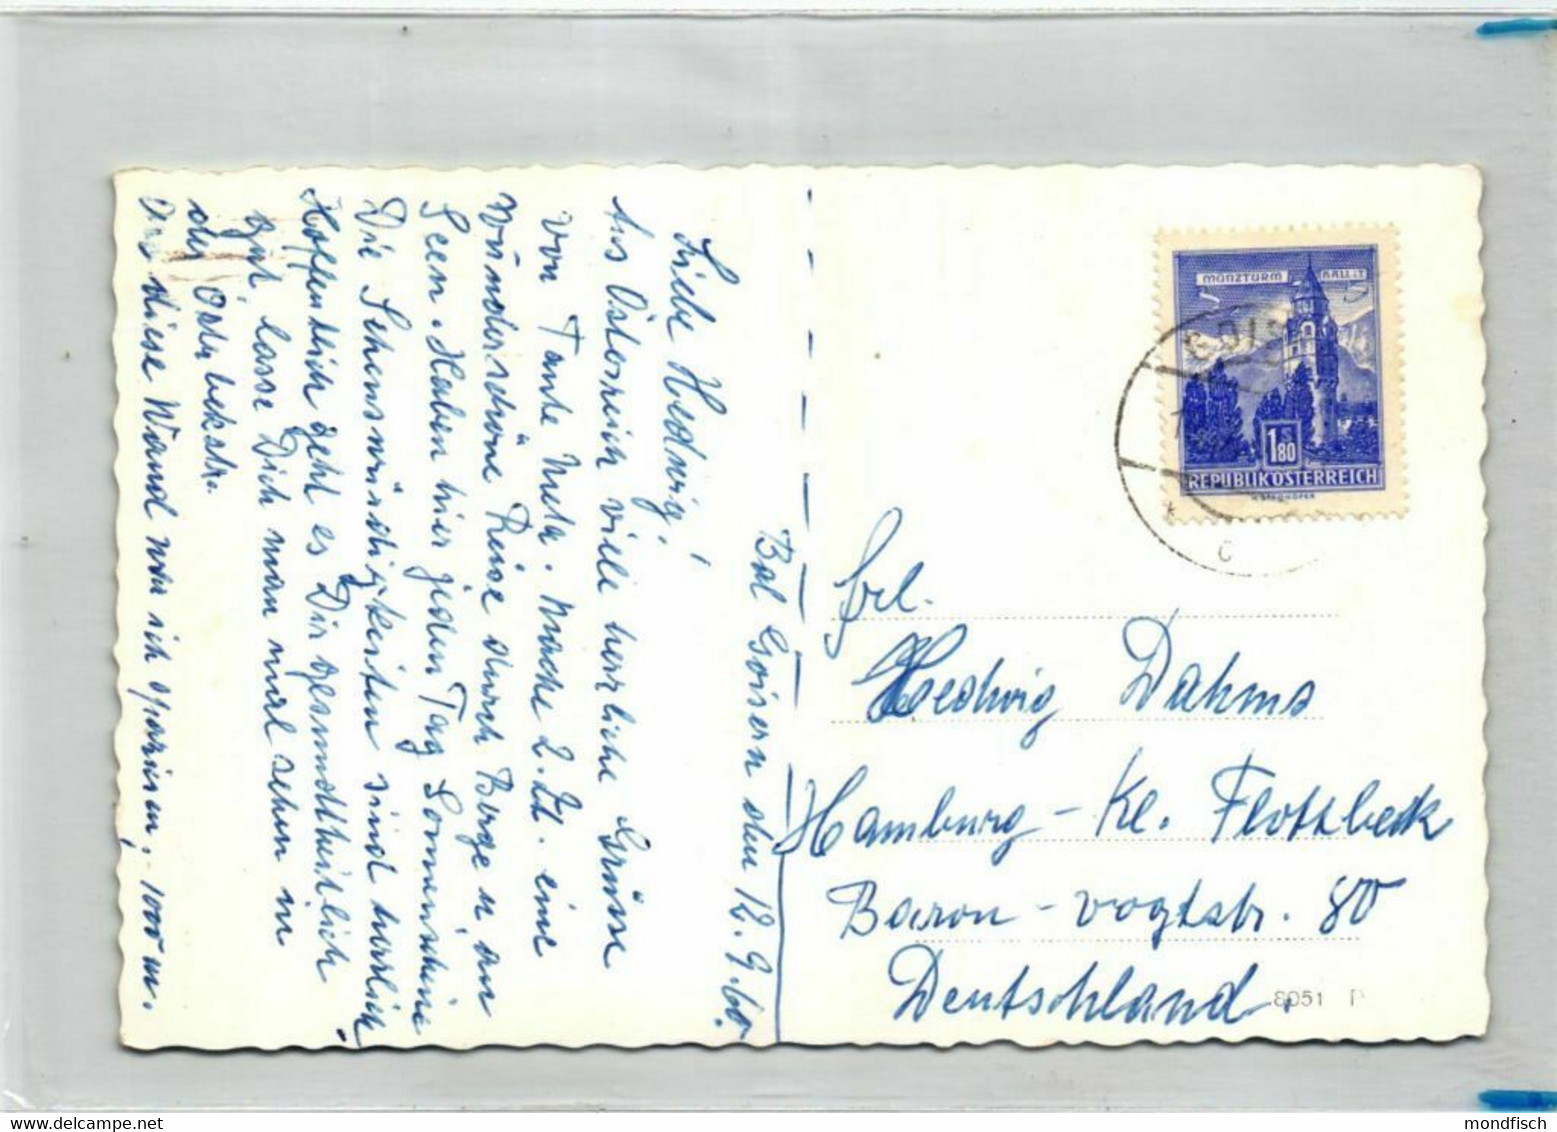 Bad Goisern den 12.9.60.
Liebe Hedwig!
Aus Österreich viele herrliche Grüsse
von Tante Meta. Mache z. Zt. eine
wunderschöne Reise durch Berge u. an
Seen. Haben hier jeden Tag Sonnenschein
Die Sehenswürdigkeiten sind herrlich
Hoffentlich geht es Dir gesundheitlich
gut, lasse Dich man mal sehen in
der
diese Wand war ich 1000 m.
MÜNZTURM HALL i.T.
1.80
REPUBLIK ÖSTERREICH
GOIS
C
Frl.
Hedwig Dahms
Hamburg - Kl. Flottbeck
Baron - Vogtstr. 80
Deutschland.
8051 P
mondfisch